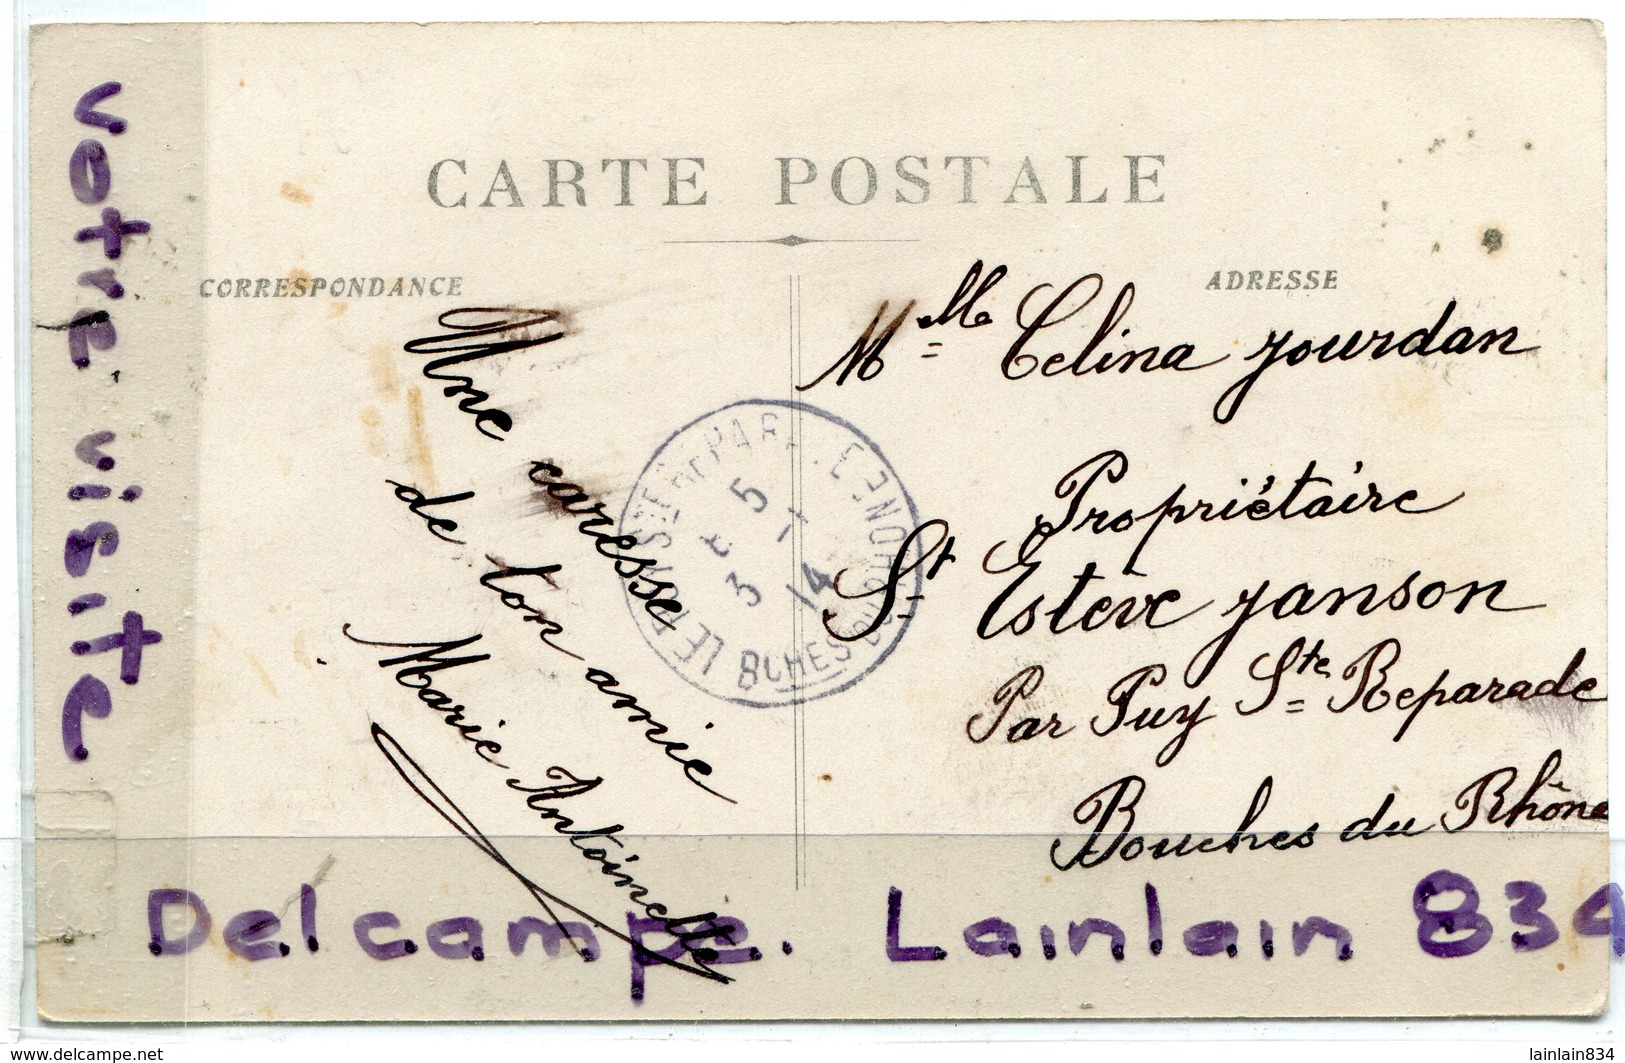 votre visite
CARTE POSTALE
CORRESPONDANCE
ADRESSE
Une caresse
de ton amie
Marie Antoinette
Mlle Celina Jourdan
Propriétaire
St Estève Janson
Par Puy Ste Reparade
Bouches du Rhône
5
14
BCHES DU RHONE
Delcampe. Lainlain 834
www.delcampe.net
lainlain834